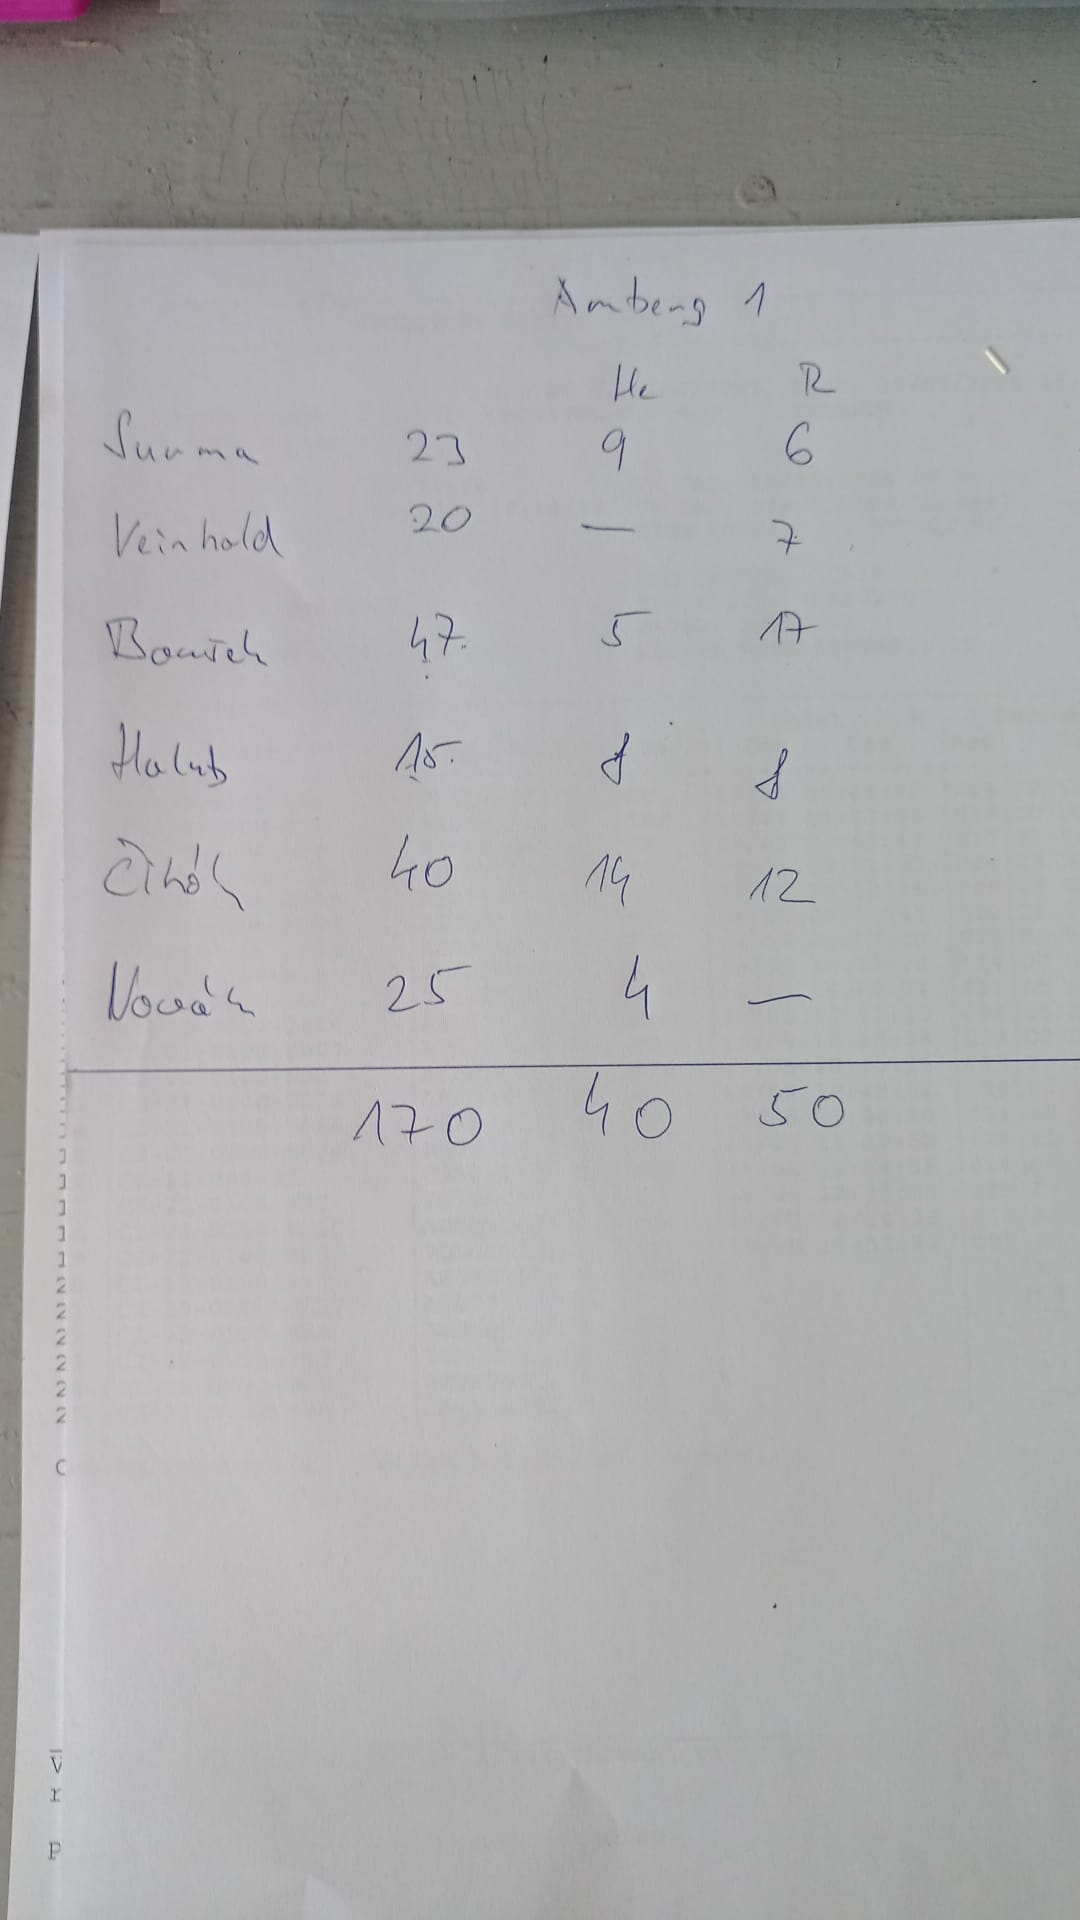 Amberg 1
He R
Summa 23 9 6
Veinhold 20 — 7
47. 5 17
Holub 15. 8 8
Čihák 40 14 12
Novák 25 4 —
170 40 50